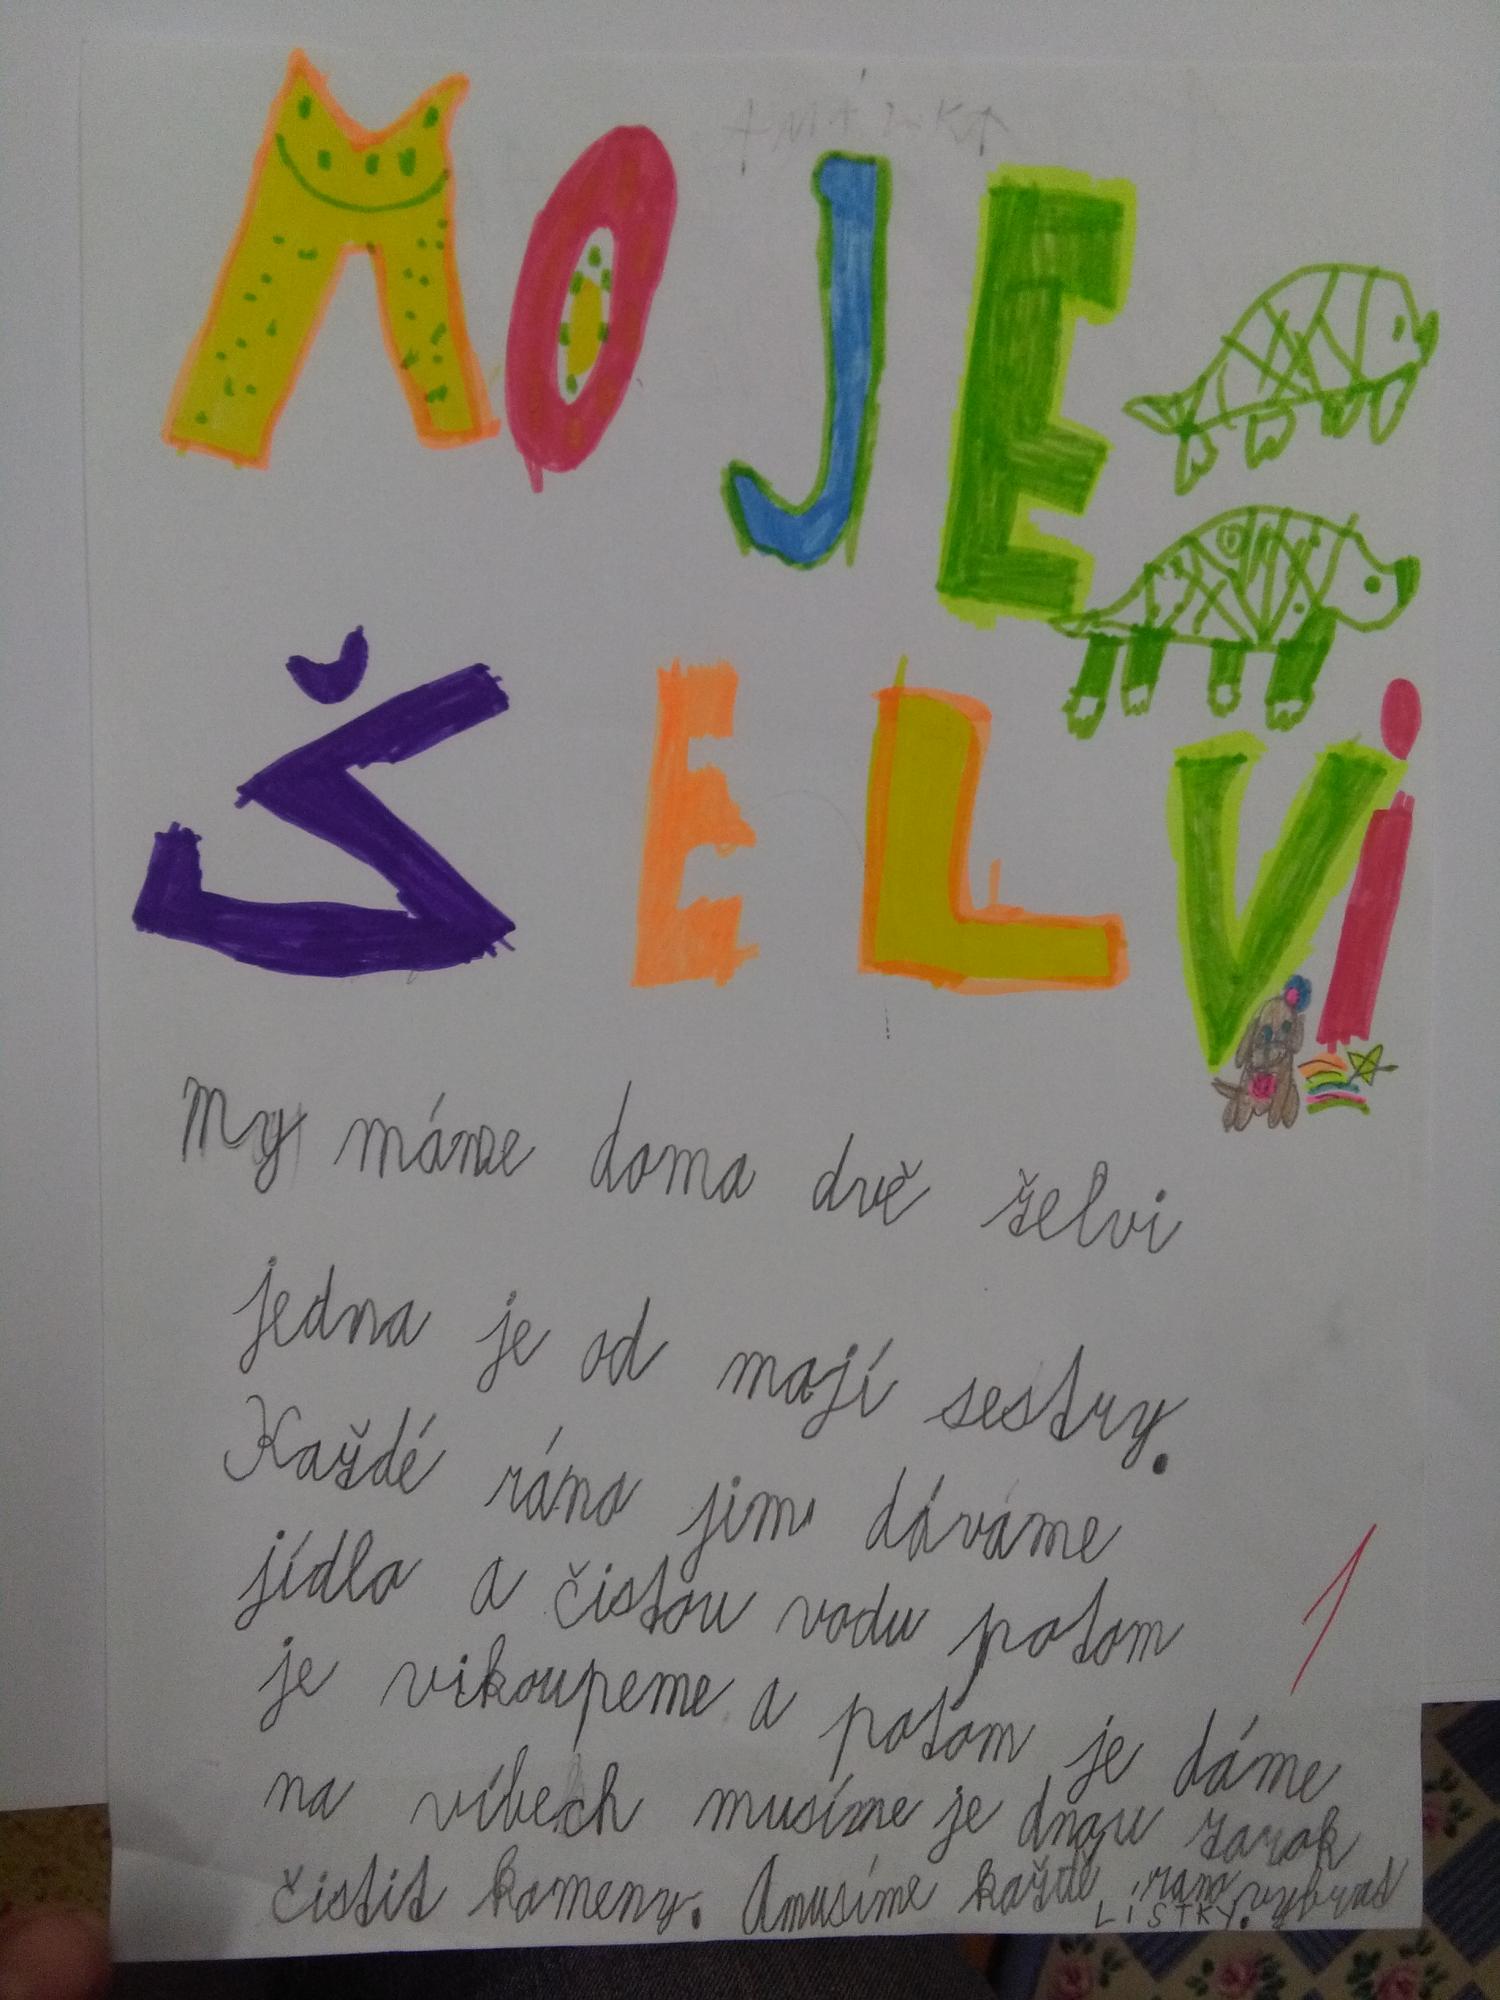 MOJE
ŠELVi
My máme doma dvě želvi
jedna je od mojí sestry.
Každé ráno jim dáváme
jídlo a čistou vodu potom
je vikoupeme a potom je dáme
na víbech musíme je dnou zarok
čistit kameny. Amusíme každé ráno vybrat
LISTKY.
1